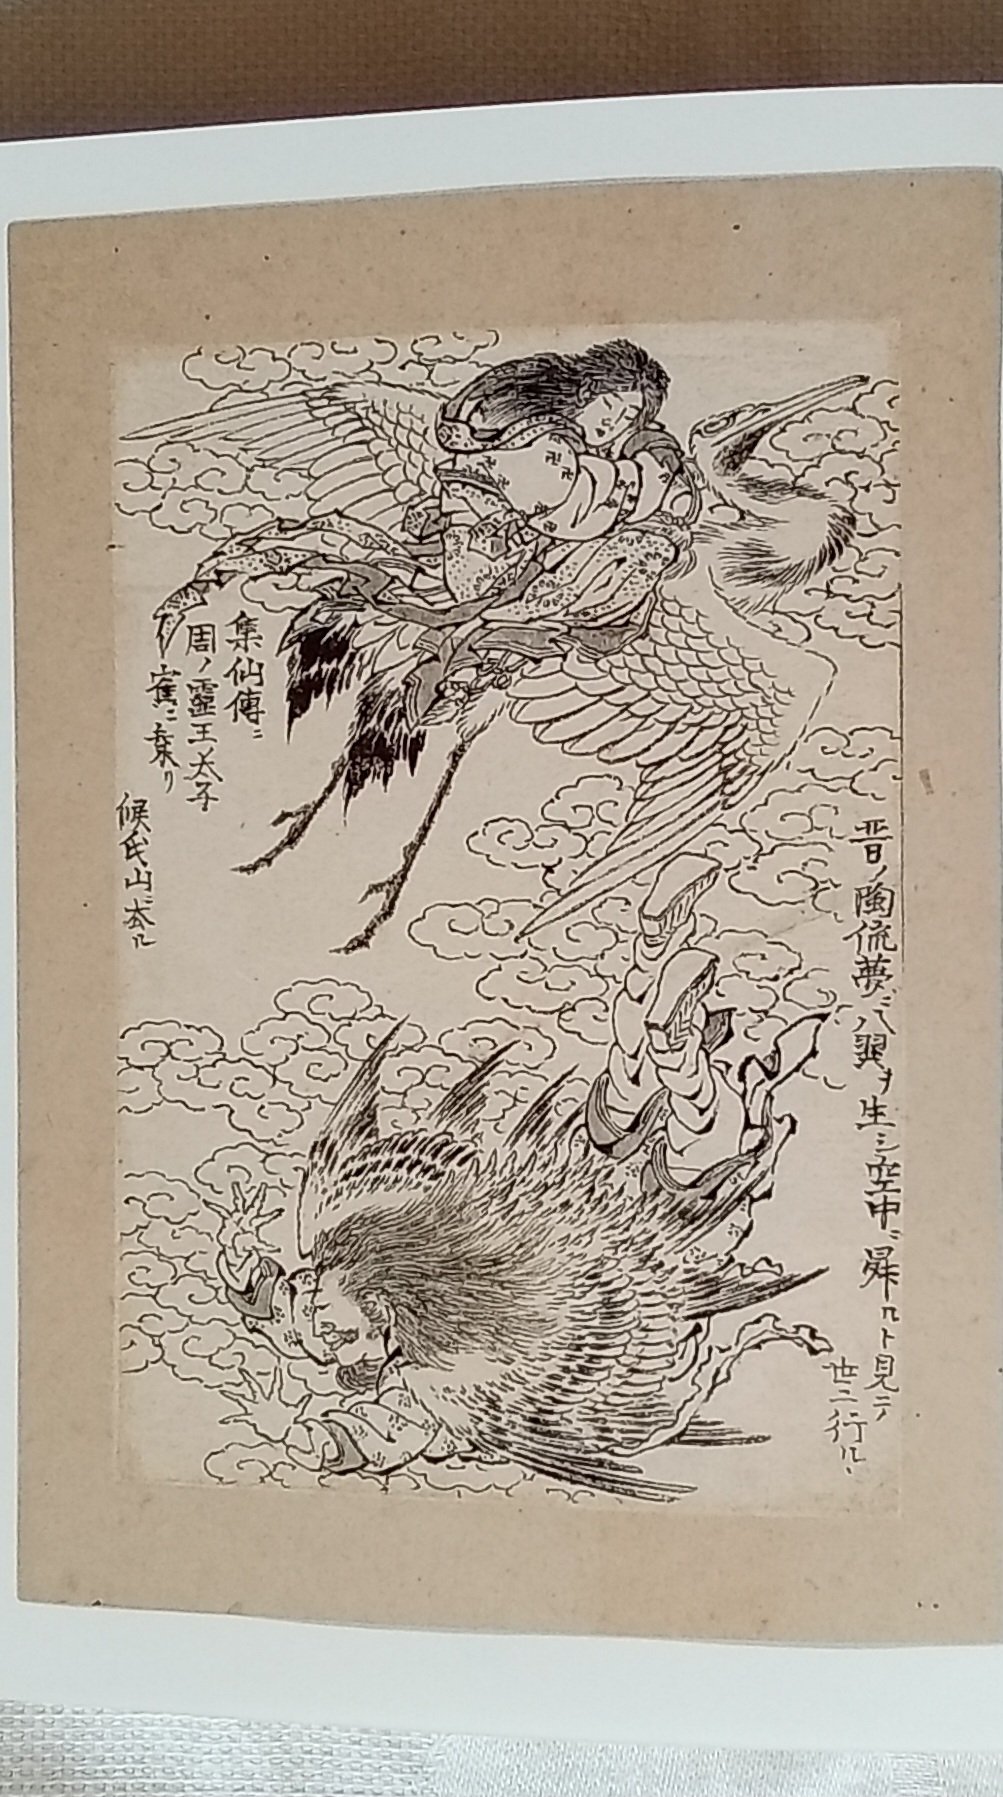 晋ノ陶侃夢ニ八翼ヲ生シ空中ニ舜ルト見テノ
世ニ行ル、
集仙傳ニ
周ノ靈王太子
寉ニ乗リ
候氏山ニ去ル